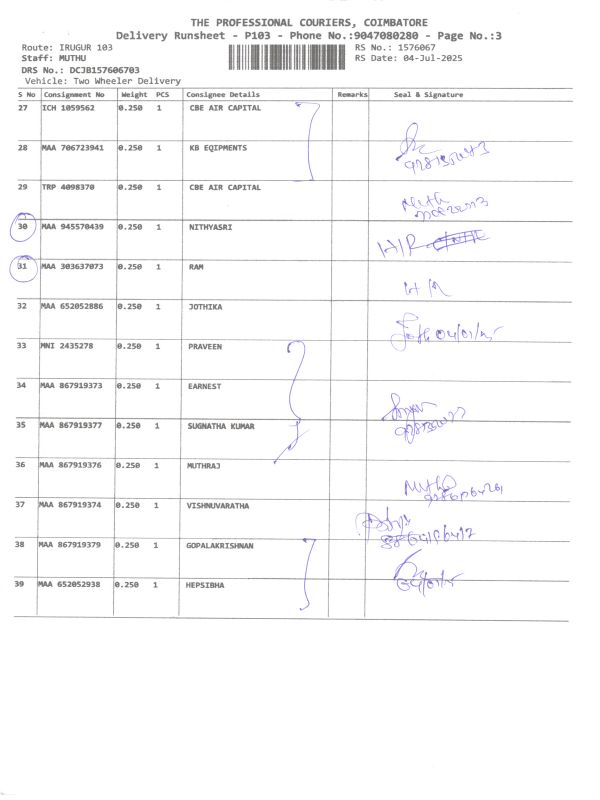 THE PROFESSIONAL COURIERS, COIMBATORE
Delivery Runsheet - P103 - Phone No.:9047080280 - Page No.:3
Route: IRUGUR 103
RS No.: 1576067
Staff: MUTHU
RS Date: 04-Jul-2025
DRS No.: DCJB157606703
Vehicle: Two Wheeler Delivery
S No Consignment No Weight PCS Consignee Details Remarks Seal & Signature
27 ICH 1059562 0.250 1 CBE AIR CAPITAL
28 MAA 706723941 0.250 1 KB EQIPMENTS
29 TRP 4098370 0.250 1 CBE AIR CAPITAL
30 MAA 945570439 0.250 1 NITHYASRI
31 MAA 303637073 0.250 1 RAM
32 MAA 652052886 0.250 1 JOTHIKA
33 MNI 2435278 0.250 1 PRAVEEN
34 MAA 867919373 0.250 1 EARNEST
35 MAA 867919377 0.250 1 SUGNATHA KUMAR
36 MAA 867919376 0.250 1 MUTHRAJ
37 MAA 867919374 0.250 1 VISHNUVARATHA
38 MAA 867919379 0.250 1 GOPALAKRISHNAN
39 MAA 652052938 0.250 1 HEPSIBHA